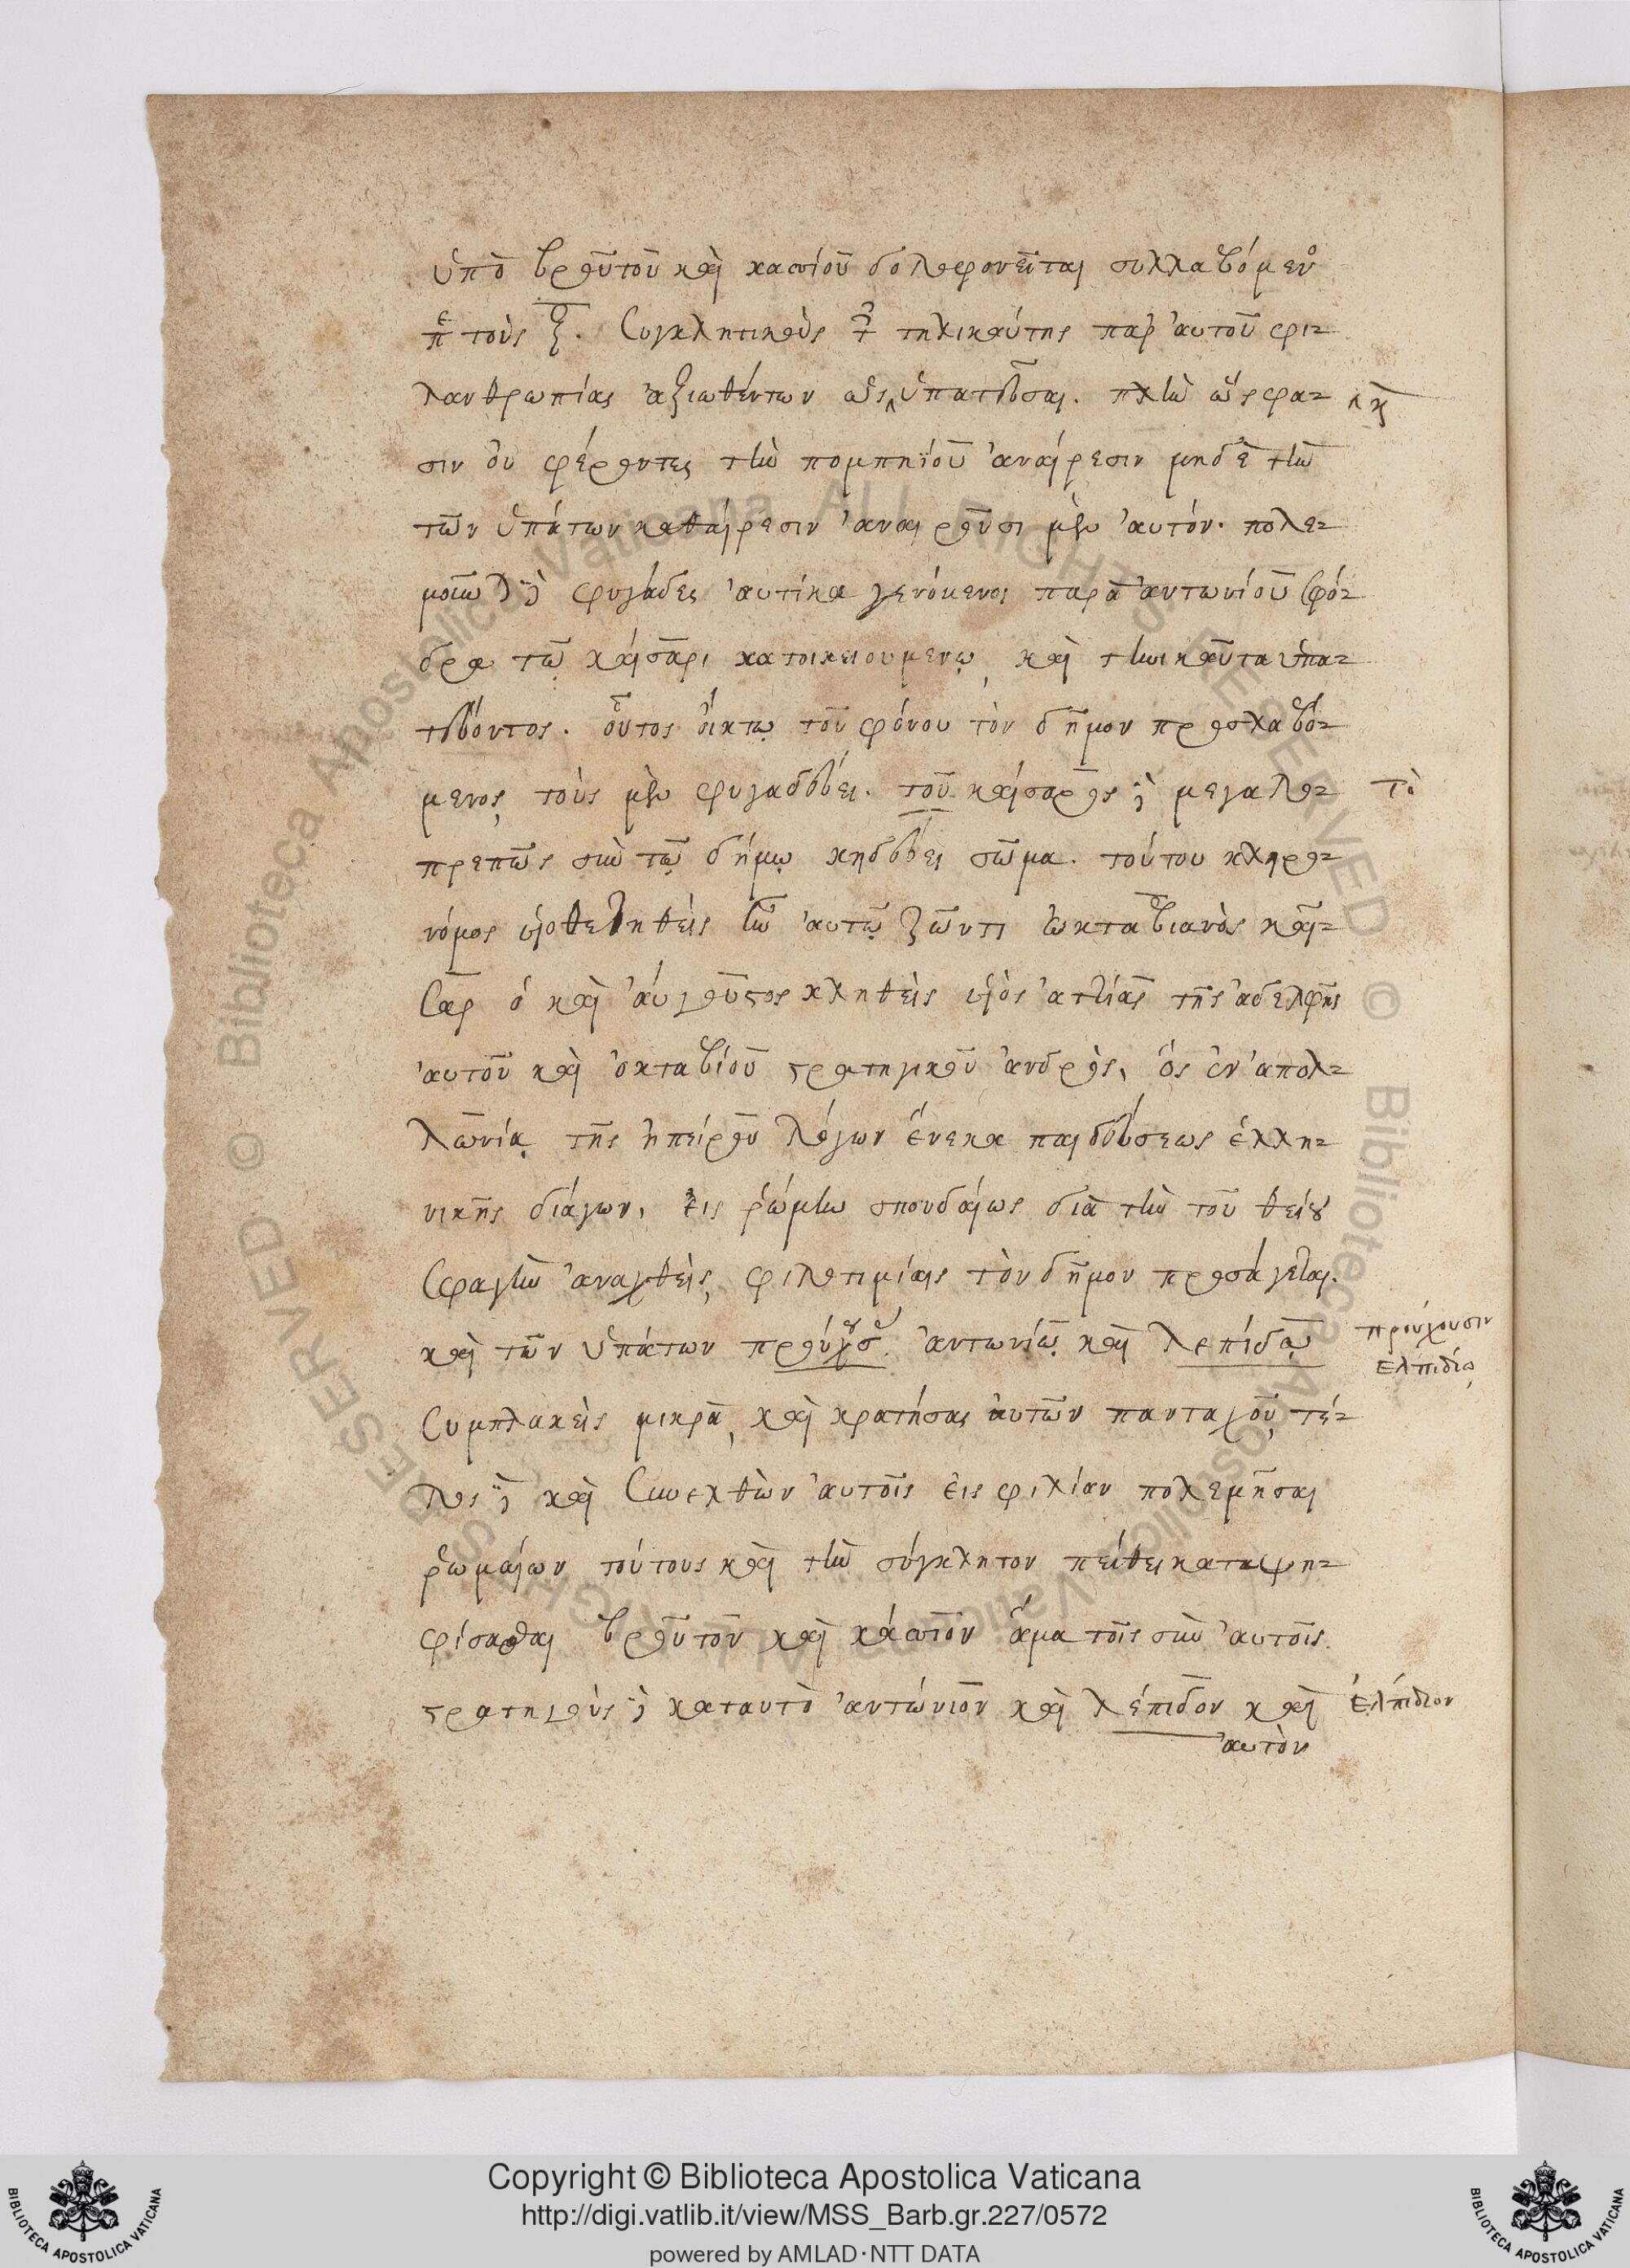 ὑπὸ βρούτου καὶ κασίου δολοφονεῖται συλλαβόμενο
τοὺς ξ. Συγκλητικοὺς τ τηλικαύτης παρ' αὐτοῦ φι-
λανθρωπίας ἀξιωθέντων ὡς ὑπατεῦσαι. πλὴν ὥς φα- κ
σιν οὐ φέροντες τὴν πομπηίου ἀναίρεσιν μηδὲ τὴν
τῶν ὑπάτων καθαίρεσιν ἀναιροῦσι μὲν αὐτόν. πολε-
φυγάδες αὐτίκα γενόμενοι παρὰ ἀντωνίου σφό-
δρα τῷ καίσαρι κατοικειουμένῳ, καὶ τηνικαῦτα ὑπα-
τεύοντος. οὗτος οἴκτῳ τοῦ φόνου τὸν δῆμον προσλαβό-
μενος, τοὺς μὲν φυγαδεύει. τοῦ καίσαρος δὲ μεγαλο- Τὸ
πρεπῶς σὺν τῷ δήμῳ κηδεύει σῶμα. τούτου κληρο-
νόμος υἱοθετηθεὶς ἦν αὐτῷ ζῶντι ὠκταβιανὸς καῖ-
Σαρ ὁ καὶ αὔγουστος κληθεὶς υἱὸς ἀττίας τῆς ἀδελφῆς
αὐτοῦ καὶ ὀκταβίου στρατηγικοῦ ἀνδρὸς, ὃς ἐν ἀπολ-
λωνίᾳ τῆς ἠπείρου λόγων ἕνεκα παιδεύσεως ἑλλη-
νικῆς διάγων, εἰς ῥώμην σπουδαίως διὰ τὴν τοῦ θείου
Σφαγὴν ἀναχθεὶς, φιλοτιμίαις τὸν δῆμον προσάγεται.
καὶ τῶν ὑπάτων προύχουσ. ἀντωνίῳ καὶ λεπίδῳ προύχουσιν
ἐλπιδίῳ
Συμπλακεὶς μικρὰ, καὶ κρατήσας αὐτῶν πανταχοῦ, τέ-
λος δὲ καὶ Συνελθὼν αὐτοῖς εἰς φιλίαν πολεμῆσαι
ῥωμαίων τούτους καὶ τὴν σύγκλητον πείθει καταψη-
φίσασθαι βροῦτον καὶ κάσιον ἅμα τοῖς σὺν αὐτοῖς.
στρατηγοὺς δὲ καταυτὸ ἀντώνιον καὶ λέπιδον καὶ ἐλπίδιον
αὐτὸν
Copyright © Biblioteca Apostolica Vaticana
http://digi.vatlib.it/view/MSS_Barb.gr.227/0572
powered by AMLAD·NTT DATA